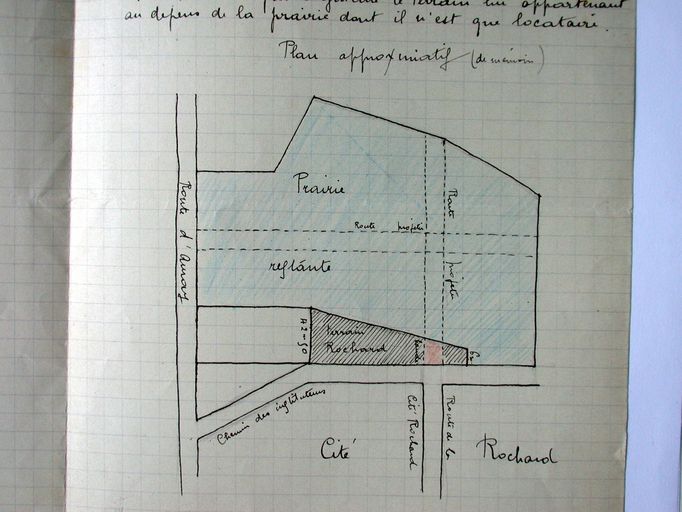 le terrain lui appartenant
au depens de la prairie dont il n'est que locataire.
Plan approximatif (de mémoire)
Prairie
Route d'Auray
Route projetée
Route projetée
restante
42-50
Terrain
Rochard
Chemin des instituteurs
Cité Rochard
Route de la
Cité
Rochard